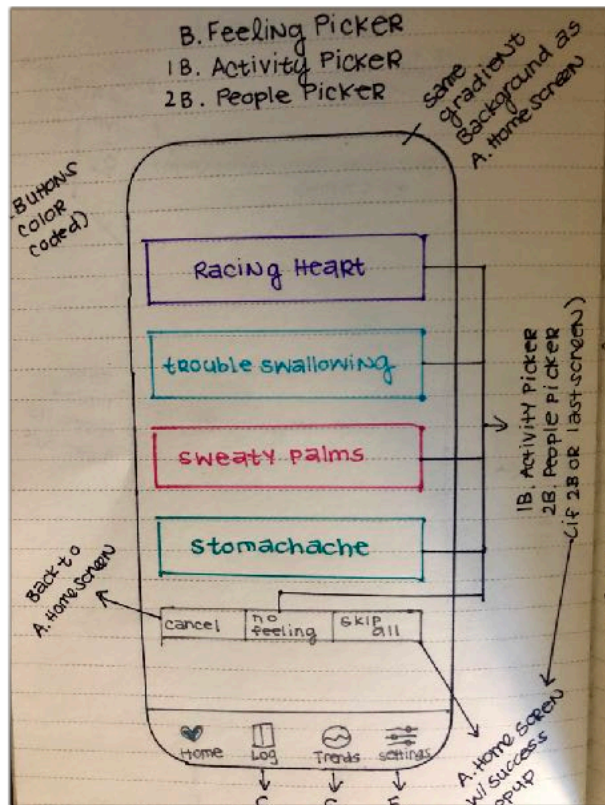 B. Feeling Picker
1B. Activity Picker
2B. People Picker
same
gradient
Background as
A. Home Screen
Buttons
color
coded)
Racing Heart
trouble swallowing
sweaty palms
stomachache
1B. Activity Picker
2B. People Picker
(if 2B or last screen)
Back to
A. Home Screen
cancel
no
feeling
skip
all
Home
Log
Trends
settings
A. Home Scren
w/ success